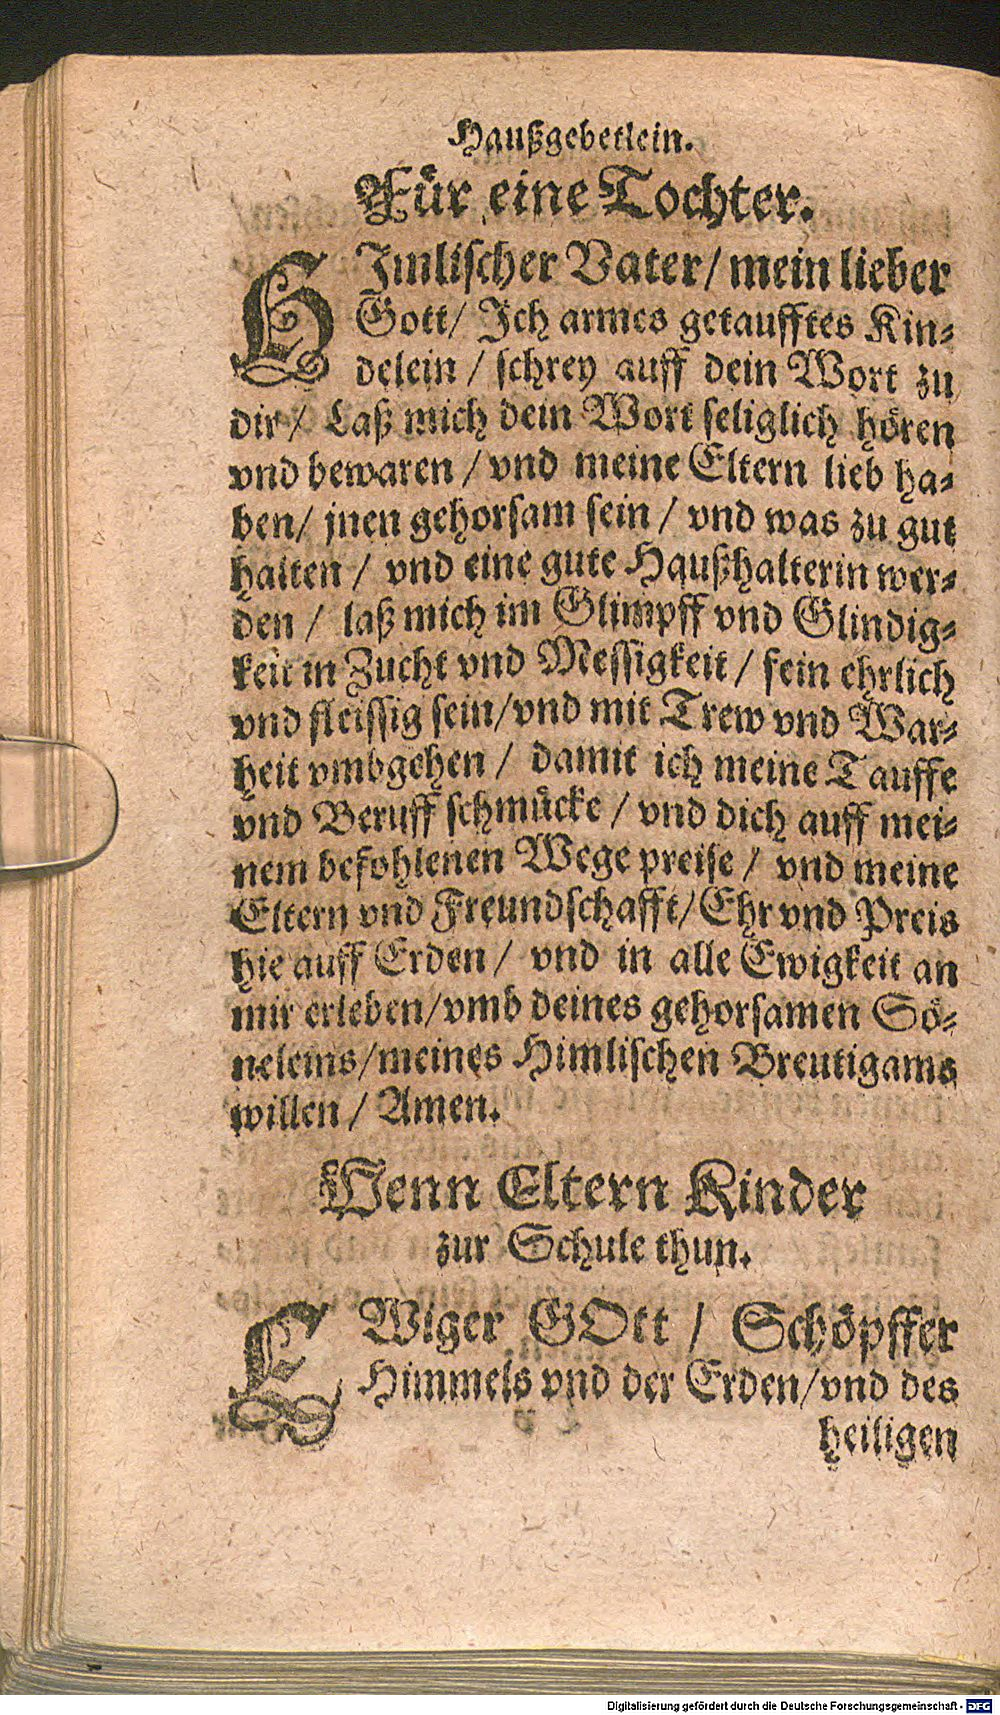 Haußgebetlein.
Für eine Tochter.
HImlischer Vater/ mein lieber
Gott/ Ich armes getaufftes Kin-
delein / schrey auff dein Wort zu
dir / Laß mich dein Wort seliglich hören
vnd bewaren / vnd meine Eltern lieb ha-
ben/ jnen gehorsam sein / vnd was zu gut
halten / vnd eine gute Haußhalterin wer-
den / laß mich im Glimpff vnd Glindig-
keit in Zucht vnd Messigkeit / fein ehrlich
vnd fleissig sein/vnd mit Trew vnd War-
heit vmbgehen / damit ich meine Tauffe
vnd Beruff schmücke / vnd dich auff mei-
nem befohlenen Wege preise / vnd meine
Eltern vnd Freundschafft/Ehr vnd Preis
hie auff Erden / vnd in alle Ewigkeit an
mir erleben/vmb deines gehorsamen Sö-
neleins/meines Himlischen Breutigams
willen / Amen.
Wenn Eltern Kinder
zur Schule thun.
EWiger GOtt / Schöpffer
Himmels vnd der Erden/vnd des
heiligen
Digitalisierung gefördert durch die Deutsche Forschungsgemeinschaft - DFG